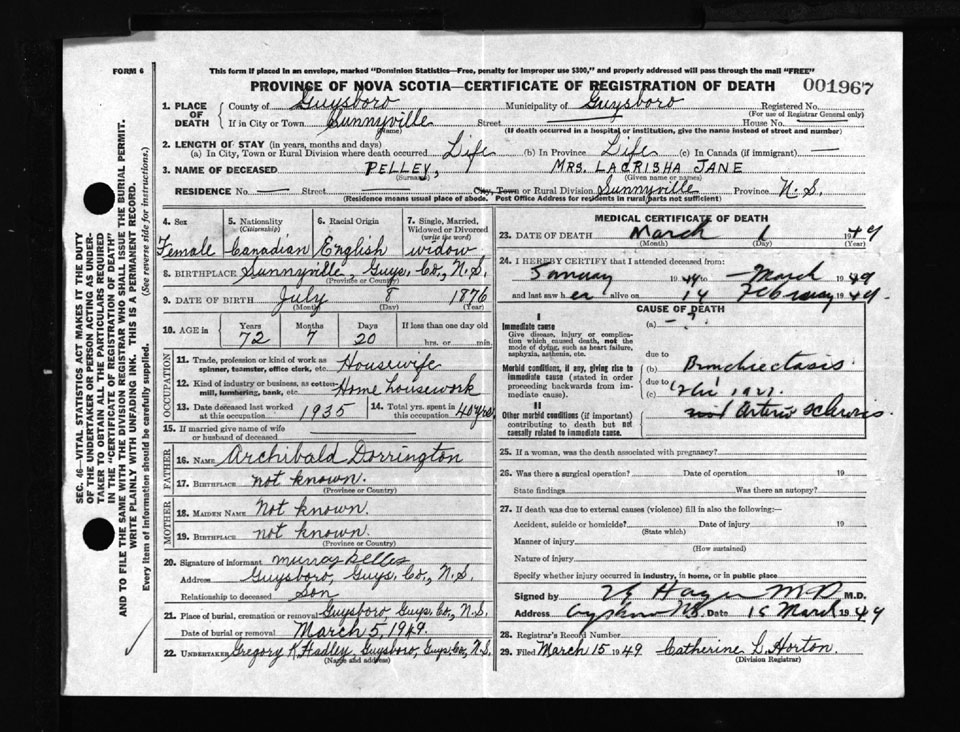 FORM 6
This form if placed in an envelope, marked "Dominion Statistics—Free, penalty for improper use $300," and properly addressed will pass through the mail "FREE"
PROVINCE OF NOVA SCOTIA—CERTIFICATE OF REGISTRATION OF DEATH 001967
1. PLACE OF DEATH { County of Guysboro Municipality of Guysboro Registered No.
(For use of Registrar General only)
If in City or Town Sunnyville Street House No.
(Name) (If death occurred in a hospital or institution, give the name instead of street and number)
2. LENGTH OF STAY (in years, months and days)
(a) In City, Town or Rural Division where death occurred Life (b) In Province Life (c) In Canada (if immigrant) —
3. NAME OF DECEASED PELLEY, MRS. LACRISHA JANE
(Surname) (Given name or names)
RESIDENCE No. — Street City, Town or Rural Division Sunnyville Province N.S.
(Residence means usual place of abode. Post Office Address for residents in rural parts not sufficient)
4. Sex 5. Nationality (Citizenship) 6. Racial Origin 7. Single, Married, Widowed or Divorced (write the word)
Female Canadian English widow
8. BIRTHPLACE Sunnyville, Guys, Co., N.S.
(Province or Country)
9. DATE OF BIRTH July 8 1876
(Month) (Day) (Year)
10. AGE in Years Months Days If less than one day old
72 7 20 hrs. or min.
OCCUPATION
11. Trade, profession or kind of work as spinner, teamster, office clerk, etc. Housewife
12. Kind of industry or business, as cotton-mill, lumbering, bank, etc. Home housework
13. Date deceased last worked at this occupation 1935 14. Total yrs. spent in this occupation 40 yrs.
15. If married give name of wife or husband of deceased
FATHER
16. NAME Archibald Dorrington
17. BIRTHPLACE not known.
(Province or Country)
MOTHER
18. MAIDEN NAME Not known.
19. BIRTHPLACE not known.
(Province or Country)
20. Signature of informant Murray
Address Guysboro, Guys, Co., N.S.
Relationship to deceased Son
21. Place of burial, cremation or removal Guysboro Guys, Co, N.S.
Date of burial or removal March 5, 1949.
22. UNDERTAKER Gregory K Hadley, Guysboro, Guys, Co, N.S.
(Name and address)
MEDICAL CERTIFICATE OF DEATH
23. DATE OF DEATH March 1 1949
(Month) (Day) (Year)
24. I HEREBY CERTIFY that I attended deceased from:
January 1949 to March 1949
and last saw her alive on 14 February 1949.
CAUSE OF DEATH
I
Immediate cause (a) — ? .
Give disease, injury or complication which caused death, not the mode of dying, such as heart failure, asphyxia, asthenia, etc.
due to
Morbid conditions, if any, giving rise to immediate cause (stated in order proceeding backwards from immediate cause). (b) Bronchiectasis.
due to
(c) 1921.
II
Other morbid conditions (if important) contributing to death but not causally related to immediate cause. Arterio sclerosis.
25. If a woman, was the death associated with pregnancy?
26. Was there a surgical operation? Date of operation 19
State findings Was there an autopsy?
27. If death was due to external causes (violence) fill in also the following:—
Accident, suicide or homicide? Date of injury 19
(State which)
Manner of injury
(How sustained)
Nature of injury
Specify whether injury occurred in industry, in home, or in public place
Signed by M.D. M.D.
Address N.S. Date 15 March 1949
28. Registrar's Record Number
29. Filed March 15 1949 Catherine L. Horton.
(Division Registrar)
SEC. 46—VITAL STATISTICS ACT MAKES IT THE DUTY
OF THE UNDERTAKER OR PERSON ACTING AS UNDER-
TAKER TO OBTAIN ALL THE PARTICULARS REQUIRED
IN THE "CERTIFICATE OF REGISTRATION OF DEATH"
AND TO FILE THE SAME WITH THE DIVISION REGISTRAR WHO SHALL ISSUE THE BURIAL PERMIT.
WRITE PLAINLY WITH UNFADING INK. THIS IS A PERMANENT RECORD.
Every item of information should be carefully supplied. (See reverse side for instructions.)